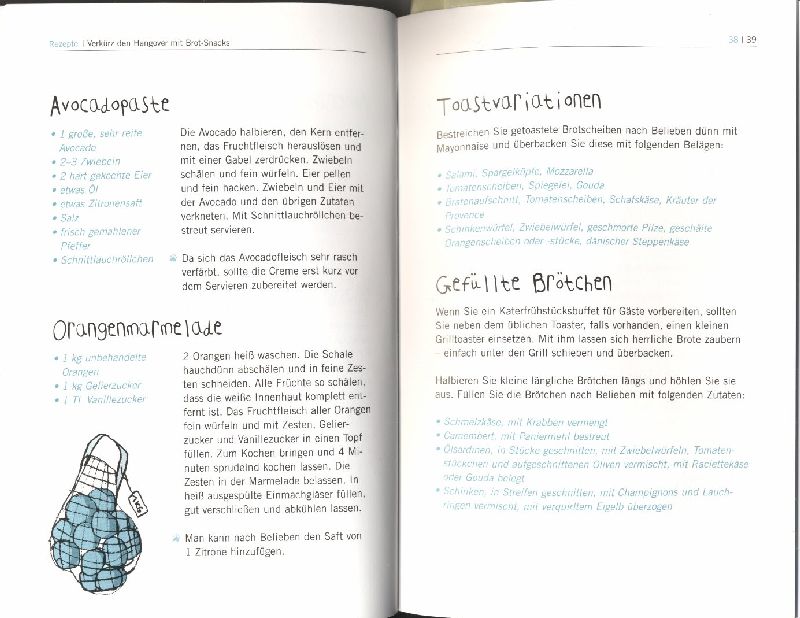 Rezepte | Verkürz den Hangover mit Brot-Snacks
Avocadopaste
• 1 große, sehr reife
Avocado
• 2–3 Zwiebeln
• 2 hart gekochte Eier
• etwas Öl
• etwas Zitronensaft
• Salz
• frisch gemahlener
Pfeffer
• Schnittlauchröllchen
Die Avocado halbieren, den Kern entfer-
nen, das Fruchtfleisch herauslösen und
mit einer Gabel zerdrücken. Zwiebeln
schälen und fein würfeln. Eier pellen
und fein hacken. Zwiebeln und Eier mit
der Avocado und den übrigen Zutaten
verkneten. Mit Schnittlauchröllchen be-
streut servieren.
Da sich das Avocadofleisch sehr rasch
verfärbt, sollte die Creme erst kurz vor
dem Servieren zubereitet werden.
Orangenmarmelade
• 1 kg unbehandelte
Orangen
• 1 kg Gelierzucker
• 1 TL Vanillezucker
2 Orangen heiß waschen. Die Schale
hauchdünn abschälen und in feine Zes-
ten schneiden. Alle Früchte so schälen,
dass die weiße Innenhaut komplett ent-
fernt ist. Das Fruchtfleisch aller Orangen
fein würfeln und mit Zesten, Gelier-
zucker und Vanillezucker in einen Topf
füllen. Zum Kochen bringen und 4 Mi-
nuten sprudelnd kochen lassen. Die
Zesten in der Marmelade belassen. In
heiß ausgespülte Einmachgläser füllen,
gut verschließen und abkühlen lassen.
Man kann nach Belieben den Saft von
1 Zitrone hinzufügen.
1kg
38 | 39
Toastvariationen
Bestreichen Sie getoastete Brotscheiben nach Belieben dünn mit
Mayonnaise und überbacken Sie diese mit folgenden Belägen:
• Salami, Spargelköpfe, Mozzarella
• Tomatenscheiben, Spiegelei, Gouda
• Bratenaufschnitt, Tomatenscheiben, Schafskäse, Kräuter der
Provence
• Schinkenwürfel, Zwiebelwürfel, geschmorte Pilze, geschälte
Orangenscheiben oder -stücke, dänischer Steppenkäse
Gefüllte Brötchen
Wenn Sie ein Katerfrühstücksbuffet für Gäste vorbereiten, sollten
Sie neben dem üblichen Toaster, falls vorhanden, einen kleinen
Grilltoaster einsetzen. Mit ihm lassen sich herrliche Brote zaubern
– einfach unter den Grill schieben und überbacken.
Halbieren Sie kleine längliche Brötchen längs und höhlen Sie sie
aus. Füllen Sie die Brötchen nach Belieben mit folgenden Zutaten:
• Schmelzkäse, mit Krabben vermengt
• Camembert, mit Paniermehl bestreut
• Ölsardinen, in Stücke geschnitten, mit Zwiebelwürfeln, Tomaten-
stückchen und aufgeschnittenen Oliven vermischt, mit Raclettekäse
oder Gouda belegt
• Schinken, in Streifen geschnitten, mit Champignons und Lauch-
ringen vermischt, mit verquirltem Eigelb überzogen